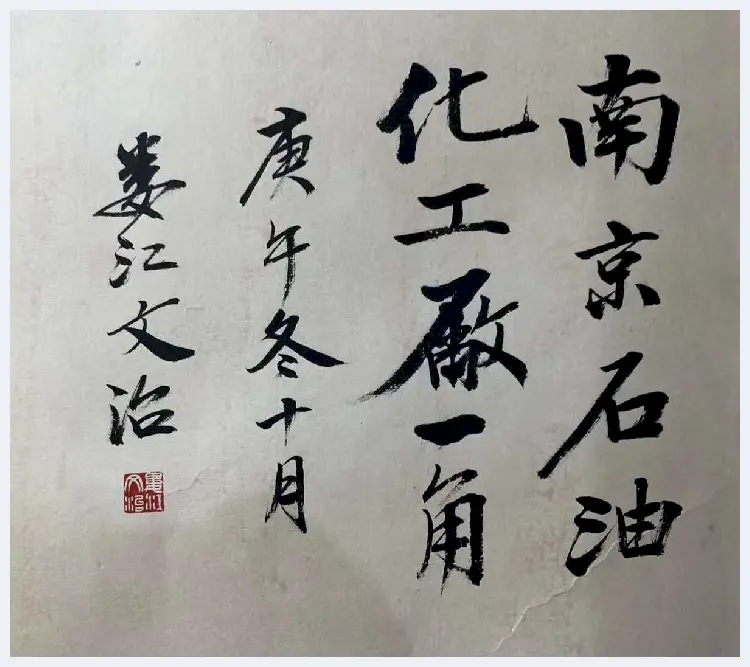 南京石油
化工廠一角
庚午冬十月
娄江文治
娄江文治